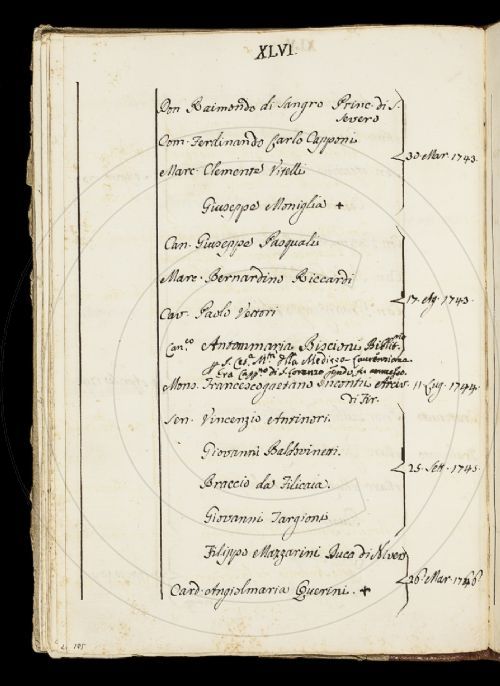 XLVI.
Don Raimondo di Sangro Princ. di S.
Severo
Com. Ferdinando Carlo Capponi
30 Mar. 1743.
Marc. Clemente Vitelli
Giuseppe Moniglia +
Can. Giuseppe Pasquali
Marc. Bernardino Riccardi
17. Ag. 1743.
Cav. Paolo Vettori
Can.co Antommaria Biscioni Bibliot.rio
p. S. Ces.a M.tà della Mediceo Laurenziana.
Era Capp.no di S. Lorenzo quando fu ammesso.
Mons. Francescogaetano Incontri Arciv. 11 Lug. 1744.
di Fir.
Sen. Vincenzio Antinori.
Giovanni Baldovinetti.
25. Sett. 1745.
Braccio da Filicaia.
Giovanni Targioni
Filippo Mazzarini Duca di Nivers
26. Mar. 1746.
Card. Angiolmaria Querini. +
105